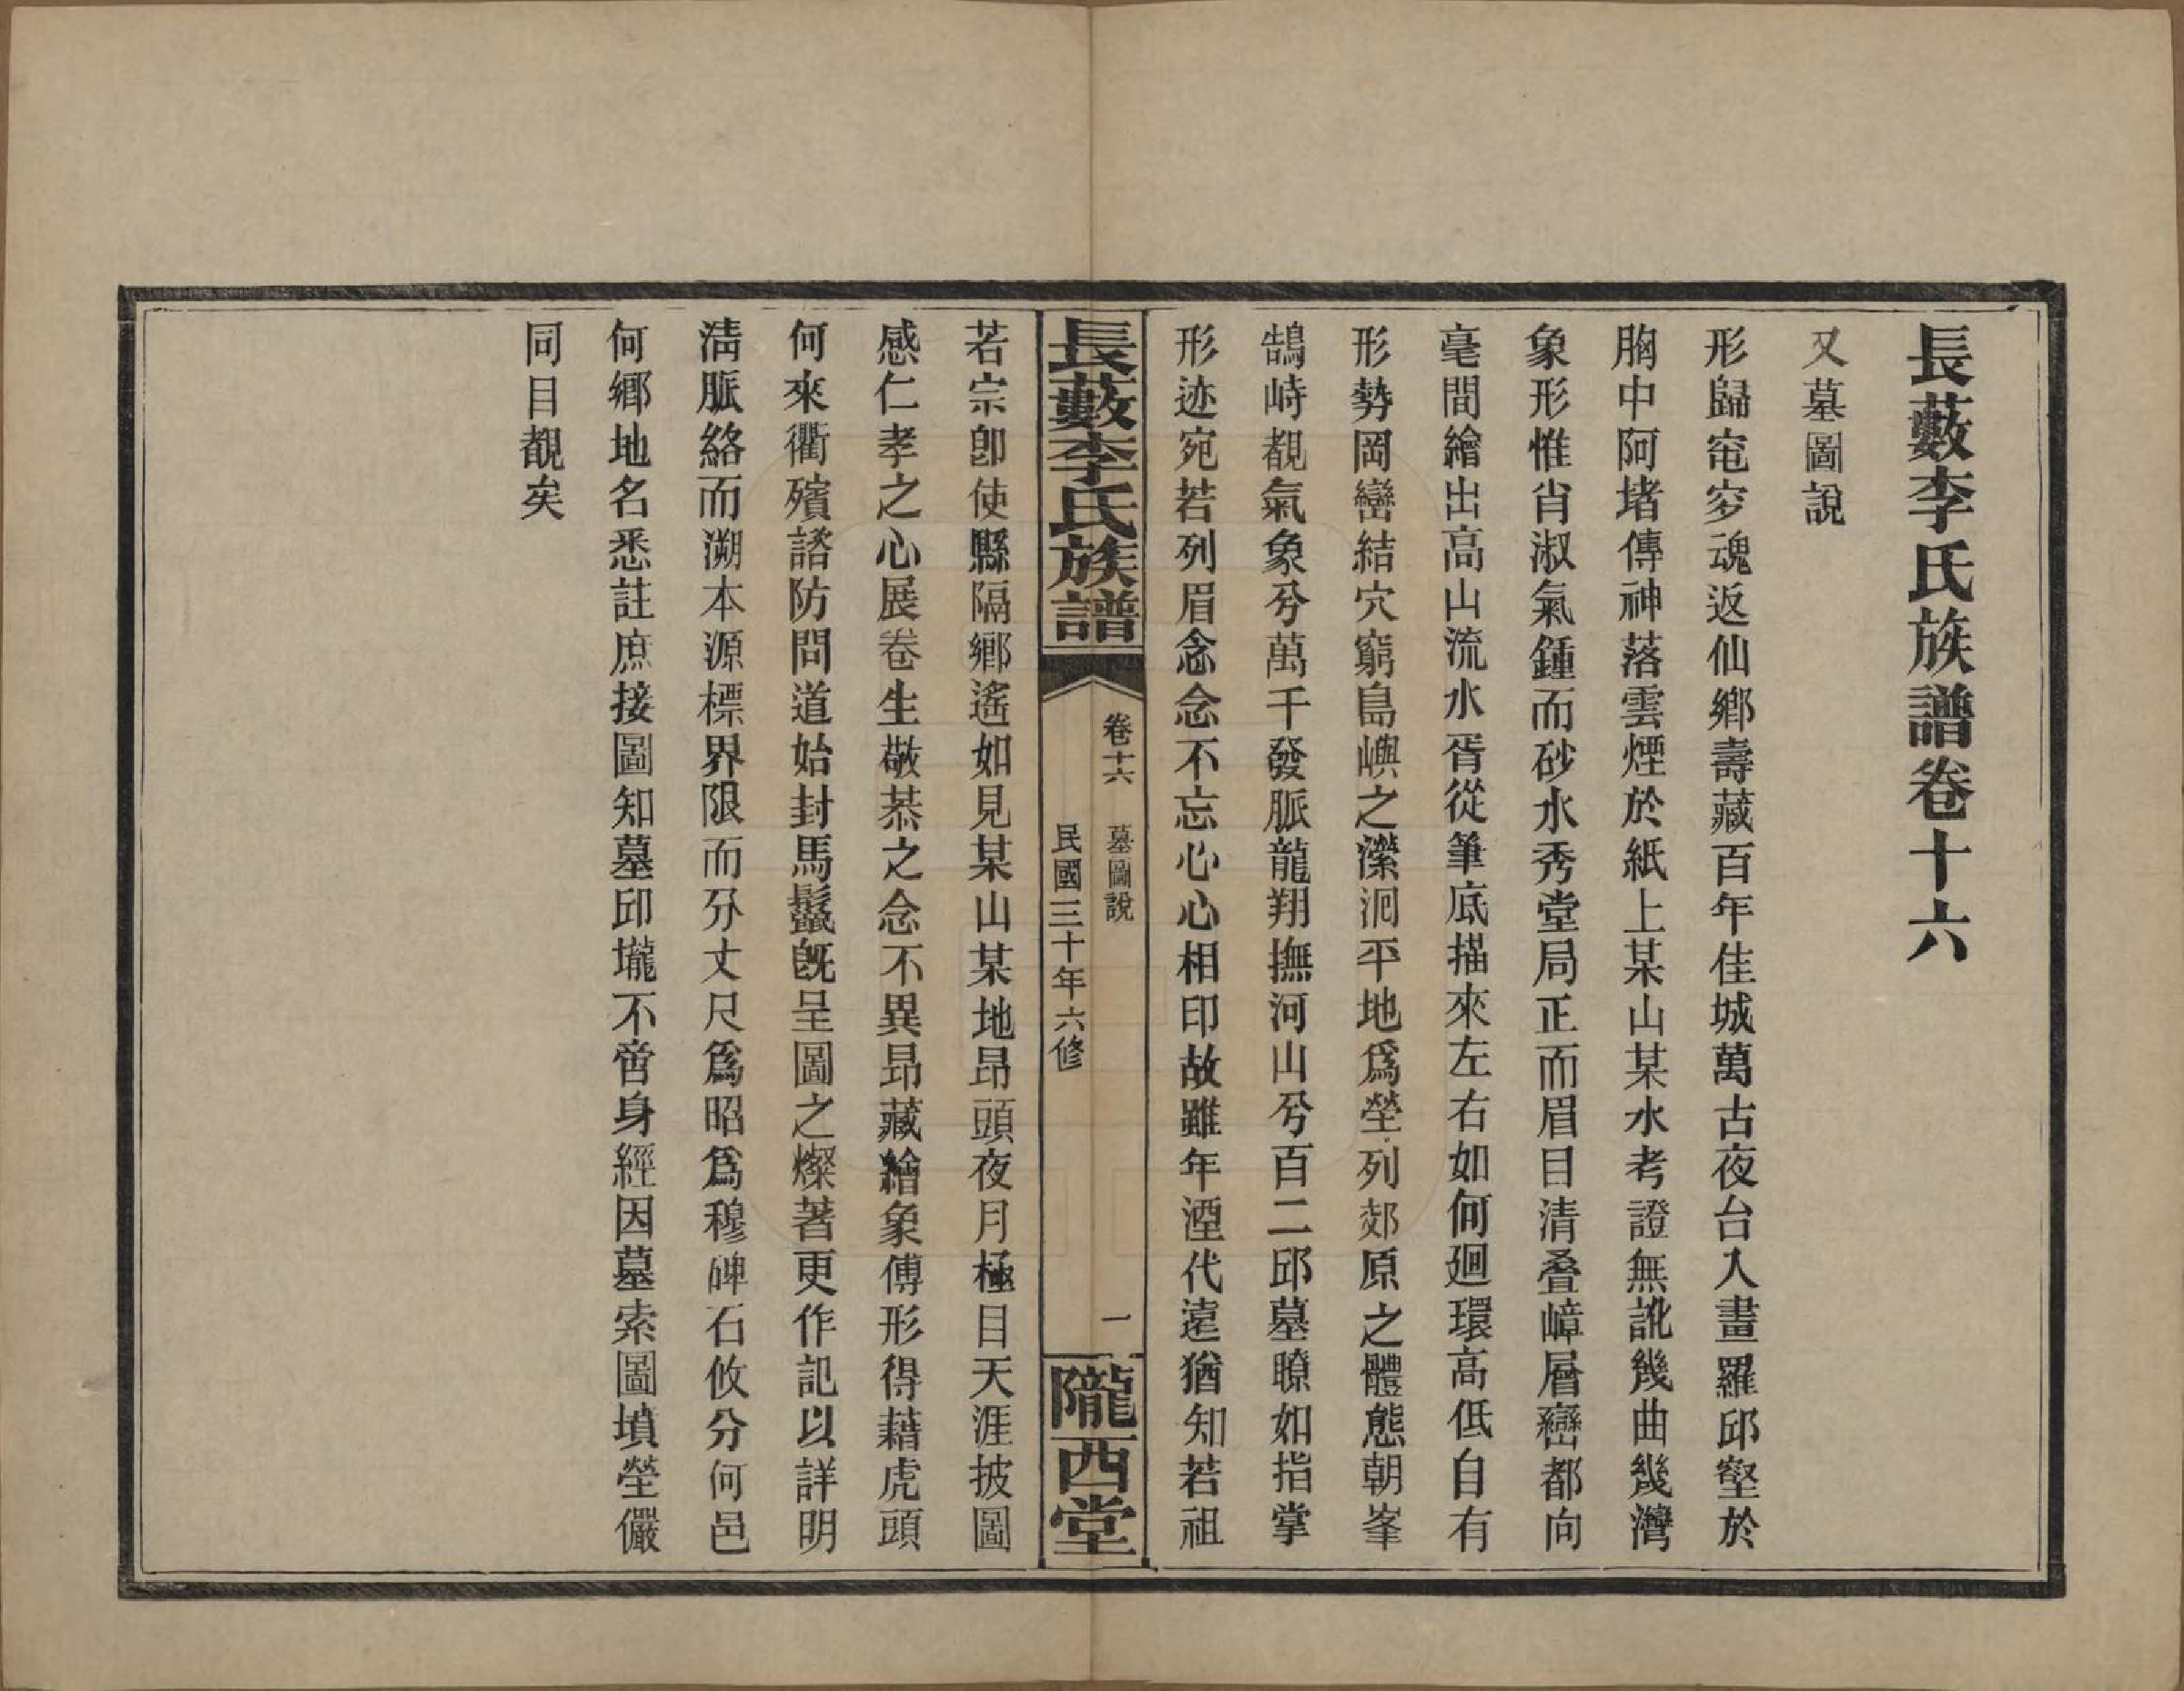 長藪李氏族譜卷十六
又墓圖說
形歸窀穸魂返仙鄉壽藏百年佳城萬古夜台入畫羅邱壑於
胸中阿堵傳神落雲煙於紙上某山某水考證無訛幾曲幾灣
象形惟肖淑氣鍾而砂水秀堂局正而眉目清叠嶂層巒都向
毫間繪出高山流水胥從筆底描來左右如何廻環高低自有
形勢岡巒結穴窮島嶼之瀠洄平地爲塋列郊原之體態朝峯
鵠峙覩氣象兮萬千發脈龍翔撫河山兮百二邱墓瞭如指掌
形迹宛若列眉念念不忘心心相印故雖年湮代遠猶知若祖
長藪李氏族譜
卷十六
墓圖說
一
民國三十年六修
隴西堂
若宗卽使縣隔鄉遙如見某山某地昂頭夜月極目天涯披圖
感仁孝之心展卷生敬恭之念不異昻藏繪象傅形得藉虎頭
何來衢殯諮防問道始封馬鬛旣呈圖之燦著更作記以詳明
淸脈絡而溯本源標界限而分丈尺爲昭爲穆碑石攸分何邑
何鄉地名悉註庶接圖知墓邱壠不啻身經因墓索圖墳塋儼
同目覩矣